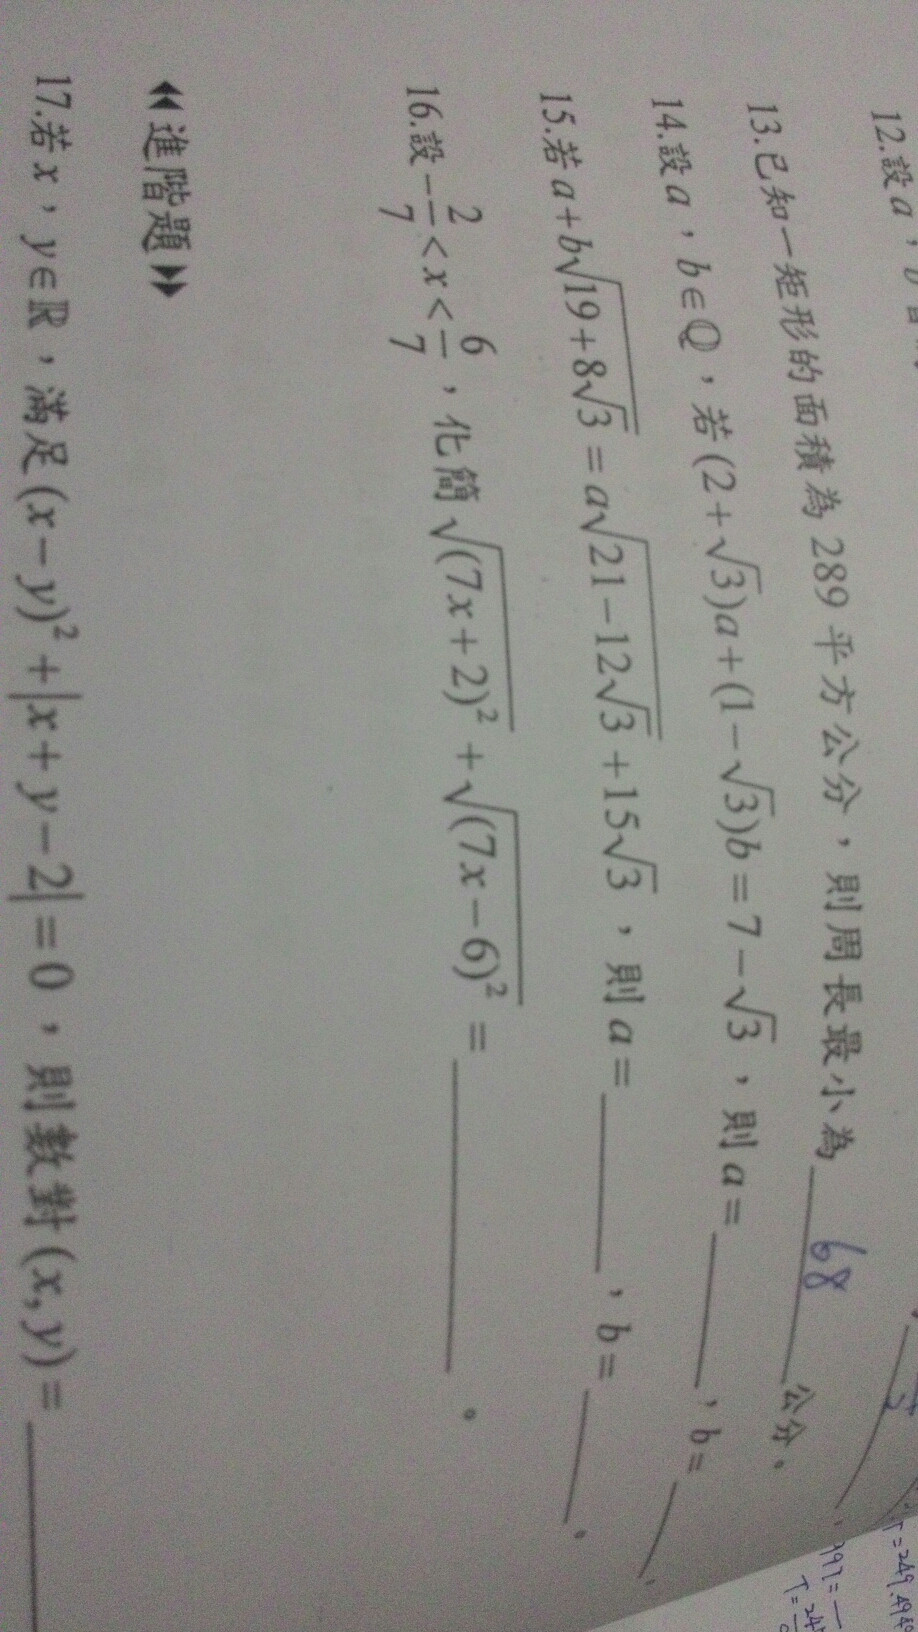 12.設 a ,
13.已知一矩形的面積為 289 平方公分，則周長最小為 68 公分。
14.設 a，b∈ℚ，若 (2+√3)a+(1−√3)b=7−√3，則 a= ，b=
15.若 a+b√(19+8√3)=a√(21−12√3)+15√3，則 a= ，b= 。
16.設 −2/7<x<6/7，化簡 √((7x+2)²)+√((7x−6)²)= 。
《進階題》
17.若 x，y∈ℝ，滿足 (x−y)²+|x+y−2|=0，則數對 (x, y)=